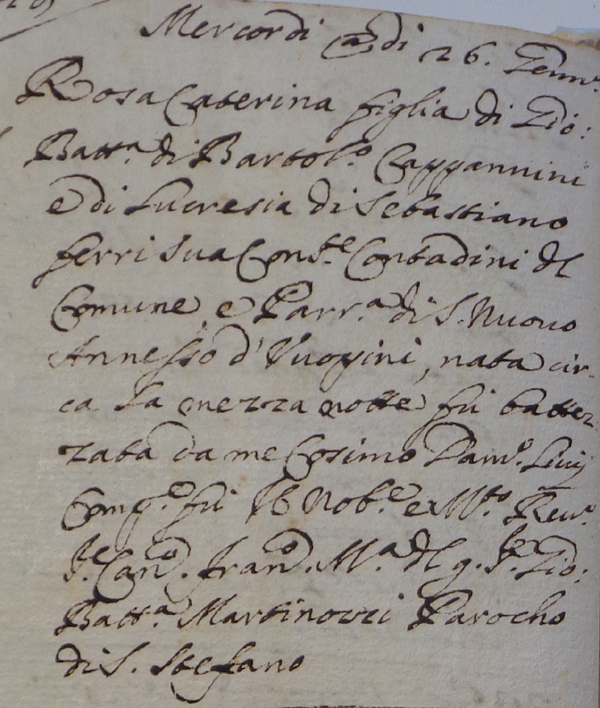 Mercordi adi 26. Genn.º
Rosa Caterina figlia di Gio:
Batt.ª di Bartol.º Cappannini
e di Lucresia di Sebastiano
ferri sua Cons.te Contadini del
Comune, e Parr.ª di S. Nuovo
Annesso d'Vuopini, nata cir-
ca la mezza notte fu battez-
zata da me Cosimo Dam.º
Comp.e fu Il Nob.e e M.to Rev.º
S.e Can.º Fran.º M.ª del q. S.e Gio:
Batt.ª Martinozzi Parocho
di S. Stefano